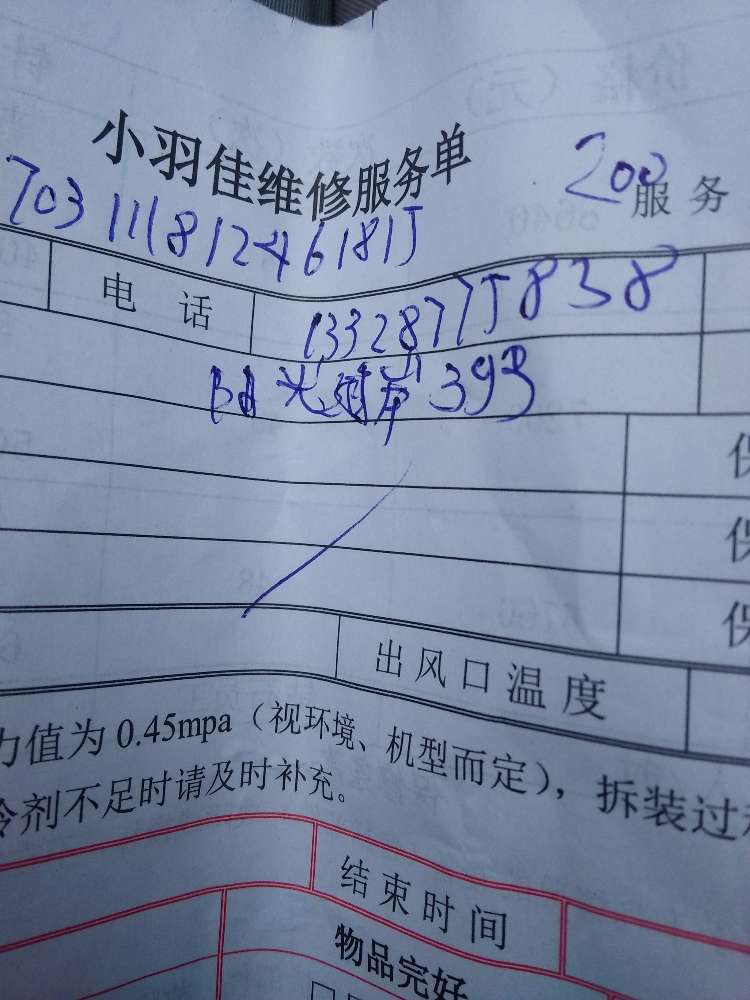 小羽佳维修服务单
200
服务
703111812461815
电话
13328775838
阳光对岸393
保
保
保
出风口温度
力值为0.45mpa（视环境、机型而定），拆装过
冷剂不足时请及时补充。
结束时间
物品完好